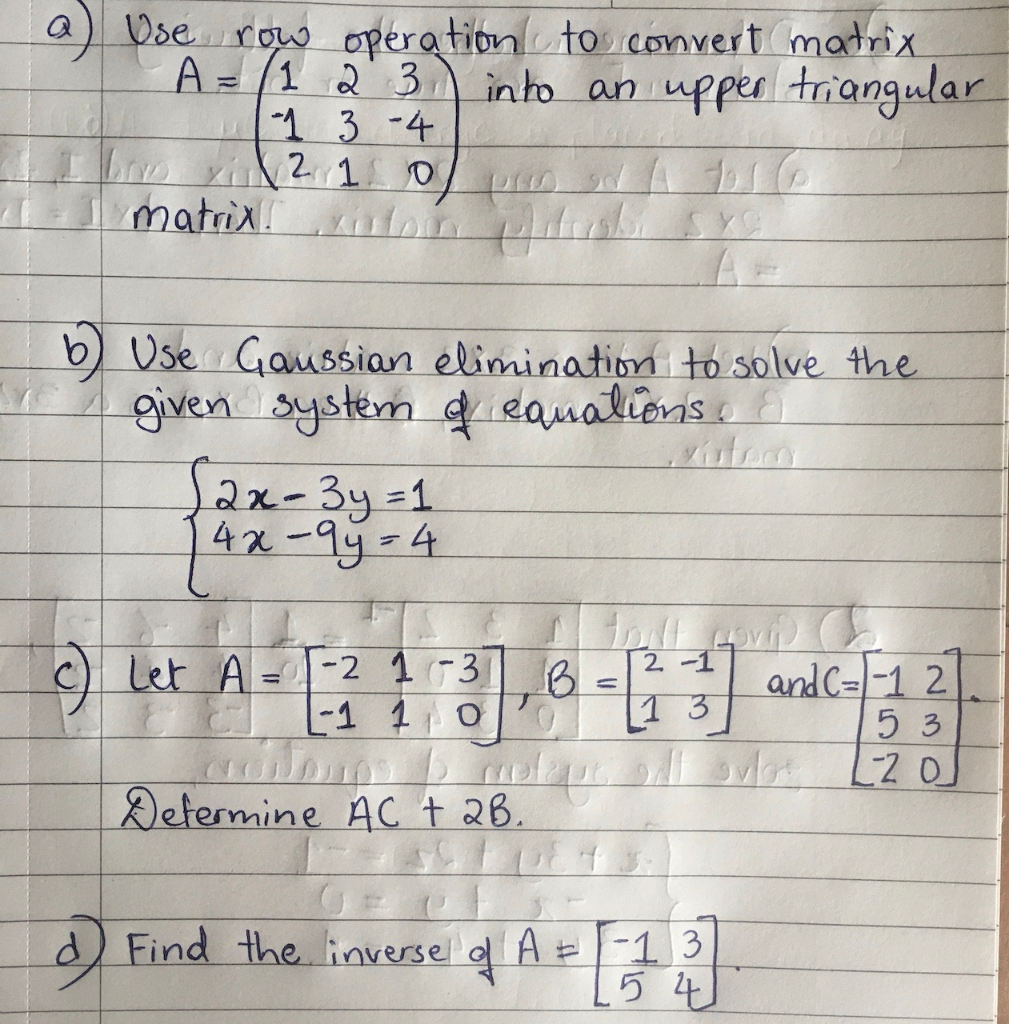 a) Use row operation to convert matrix
A = (1 2 3
-1 3 -4
2 1 0) into an upper triangular
matrix.
b) Use Gaussian elimination to solve the
given system of equations.
{2x - 3y = 1
4x - 9y = 4
c) Let A = [-2 1 -3
-1 1 0], B = [2 -1
1 3] and C = [-1 2
5 3
-2 0].
Determine AC + 2B.
d) Find the inverse of A = [-1 3
5 4].